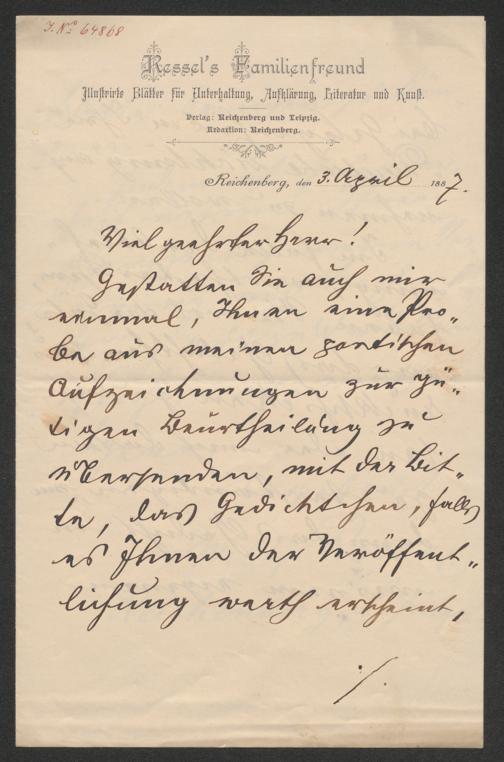 J. No 64868
Kessel's Familienfreund
Illustrirte Blätter für Unterhaltung, Aufklärung, Literatur und Kunst.
Verlag: Reichenberg und Leipzig.
Redaction: Reichenberg.
Reichenberg, den 3. April 1887.
Vielgeehrter Herr!
Gestatten Sie auch mir
einmal, Ihnen eine Pro„
be aus meinen poetischen
Aufzeichnungen zur gü„
tigen Beurtheilung zu
übersenden, mit der Bit„
te, das Gedichtchen, falls
es Ihnen der Veröffent„
lichung werth erscheint,
./.